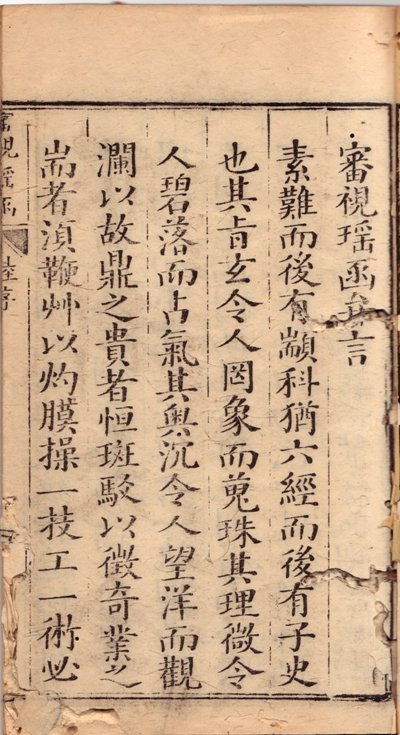 審視瑶函弁言
素難而後有顓科猶六經而後有子史
也其旨玄令人罔象而蒐珠其理微令
人碧落而占氣其奥沉令人望洋而觀
瀾以故鼎之貴者恒斑駁以徵奇業之
耑者湏鞭艸以灼膜操一技工一術必
審視瑶函